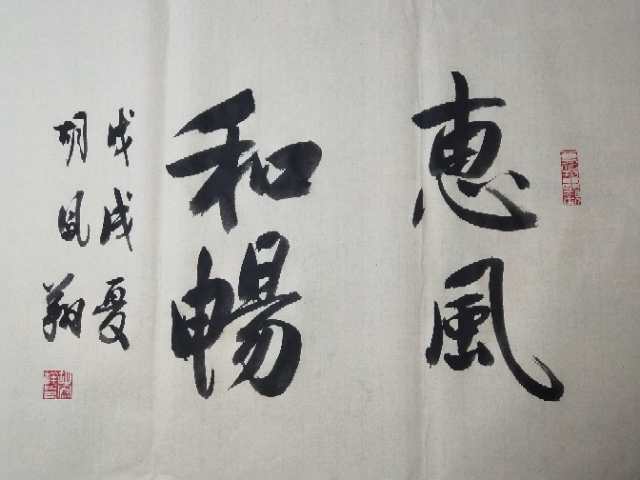 惠風
和暢
戊戌夏
胡凤翔